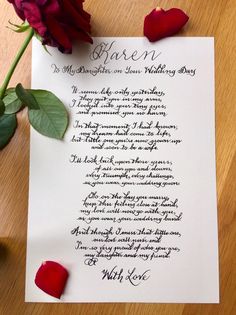 Karen
To My Daughter on Your Wedding Day
It seems like only yesterday,
They put you in my arms,
I looked into your tiny eyes,
and promised you no harm.
In that moment I had known,
my dream had come to life,
but little one you're now grown up
and soon to be a wife.
I'll look back upon those years,
of all our ups and downs,
every triumph, every challenge,
as you wear your wedding gown.
So on the day you marry,
keep this feeling close at hand,
my love will now go with you,
as you wear your wedding band.
And though I miss that little one,
our love will never end
I'm so very proud of who you are,
my daughter and my friend.
With Love